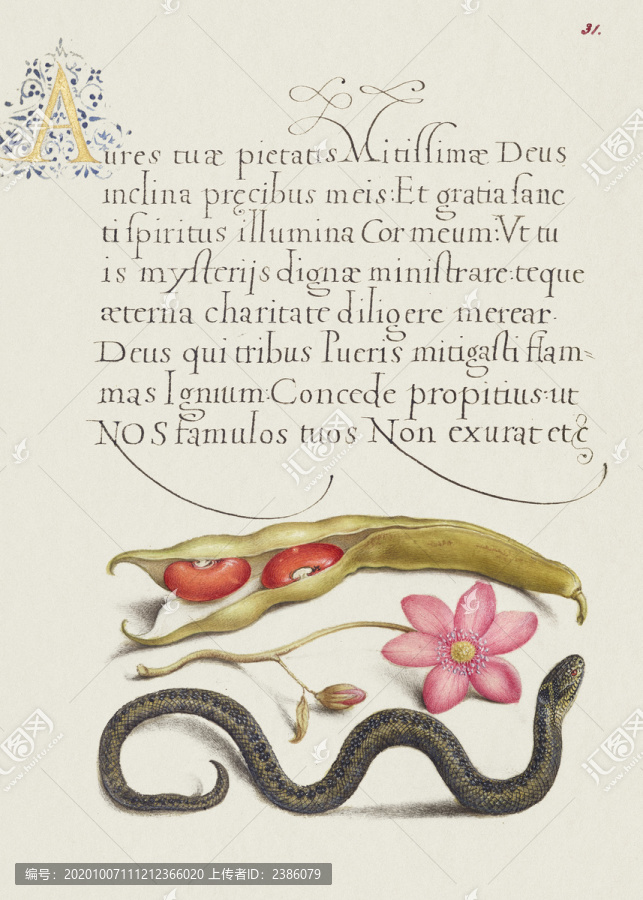 31.
Aures tuæ pietatis Mitiſſimæ Deus
inclina pręcibus meis: Et gratia ſanc
ti ſpiritus illumina Cor meum: Vt tu
is myſterijs dignæ miniſtrare: teque
æterna charitate diligere merear.
Deus qui tribus Pueris mitigaſti flam=
mas Ignium: Concede propitius: ut
NOS famulos tuos Non exurat etc̃
编号：20201007111212366020 上传者ID：2386079
汇图网
www.huitu.com